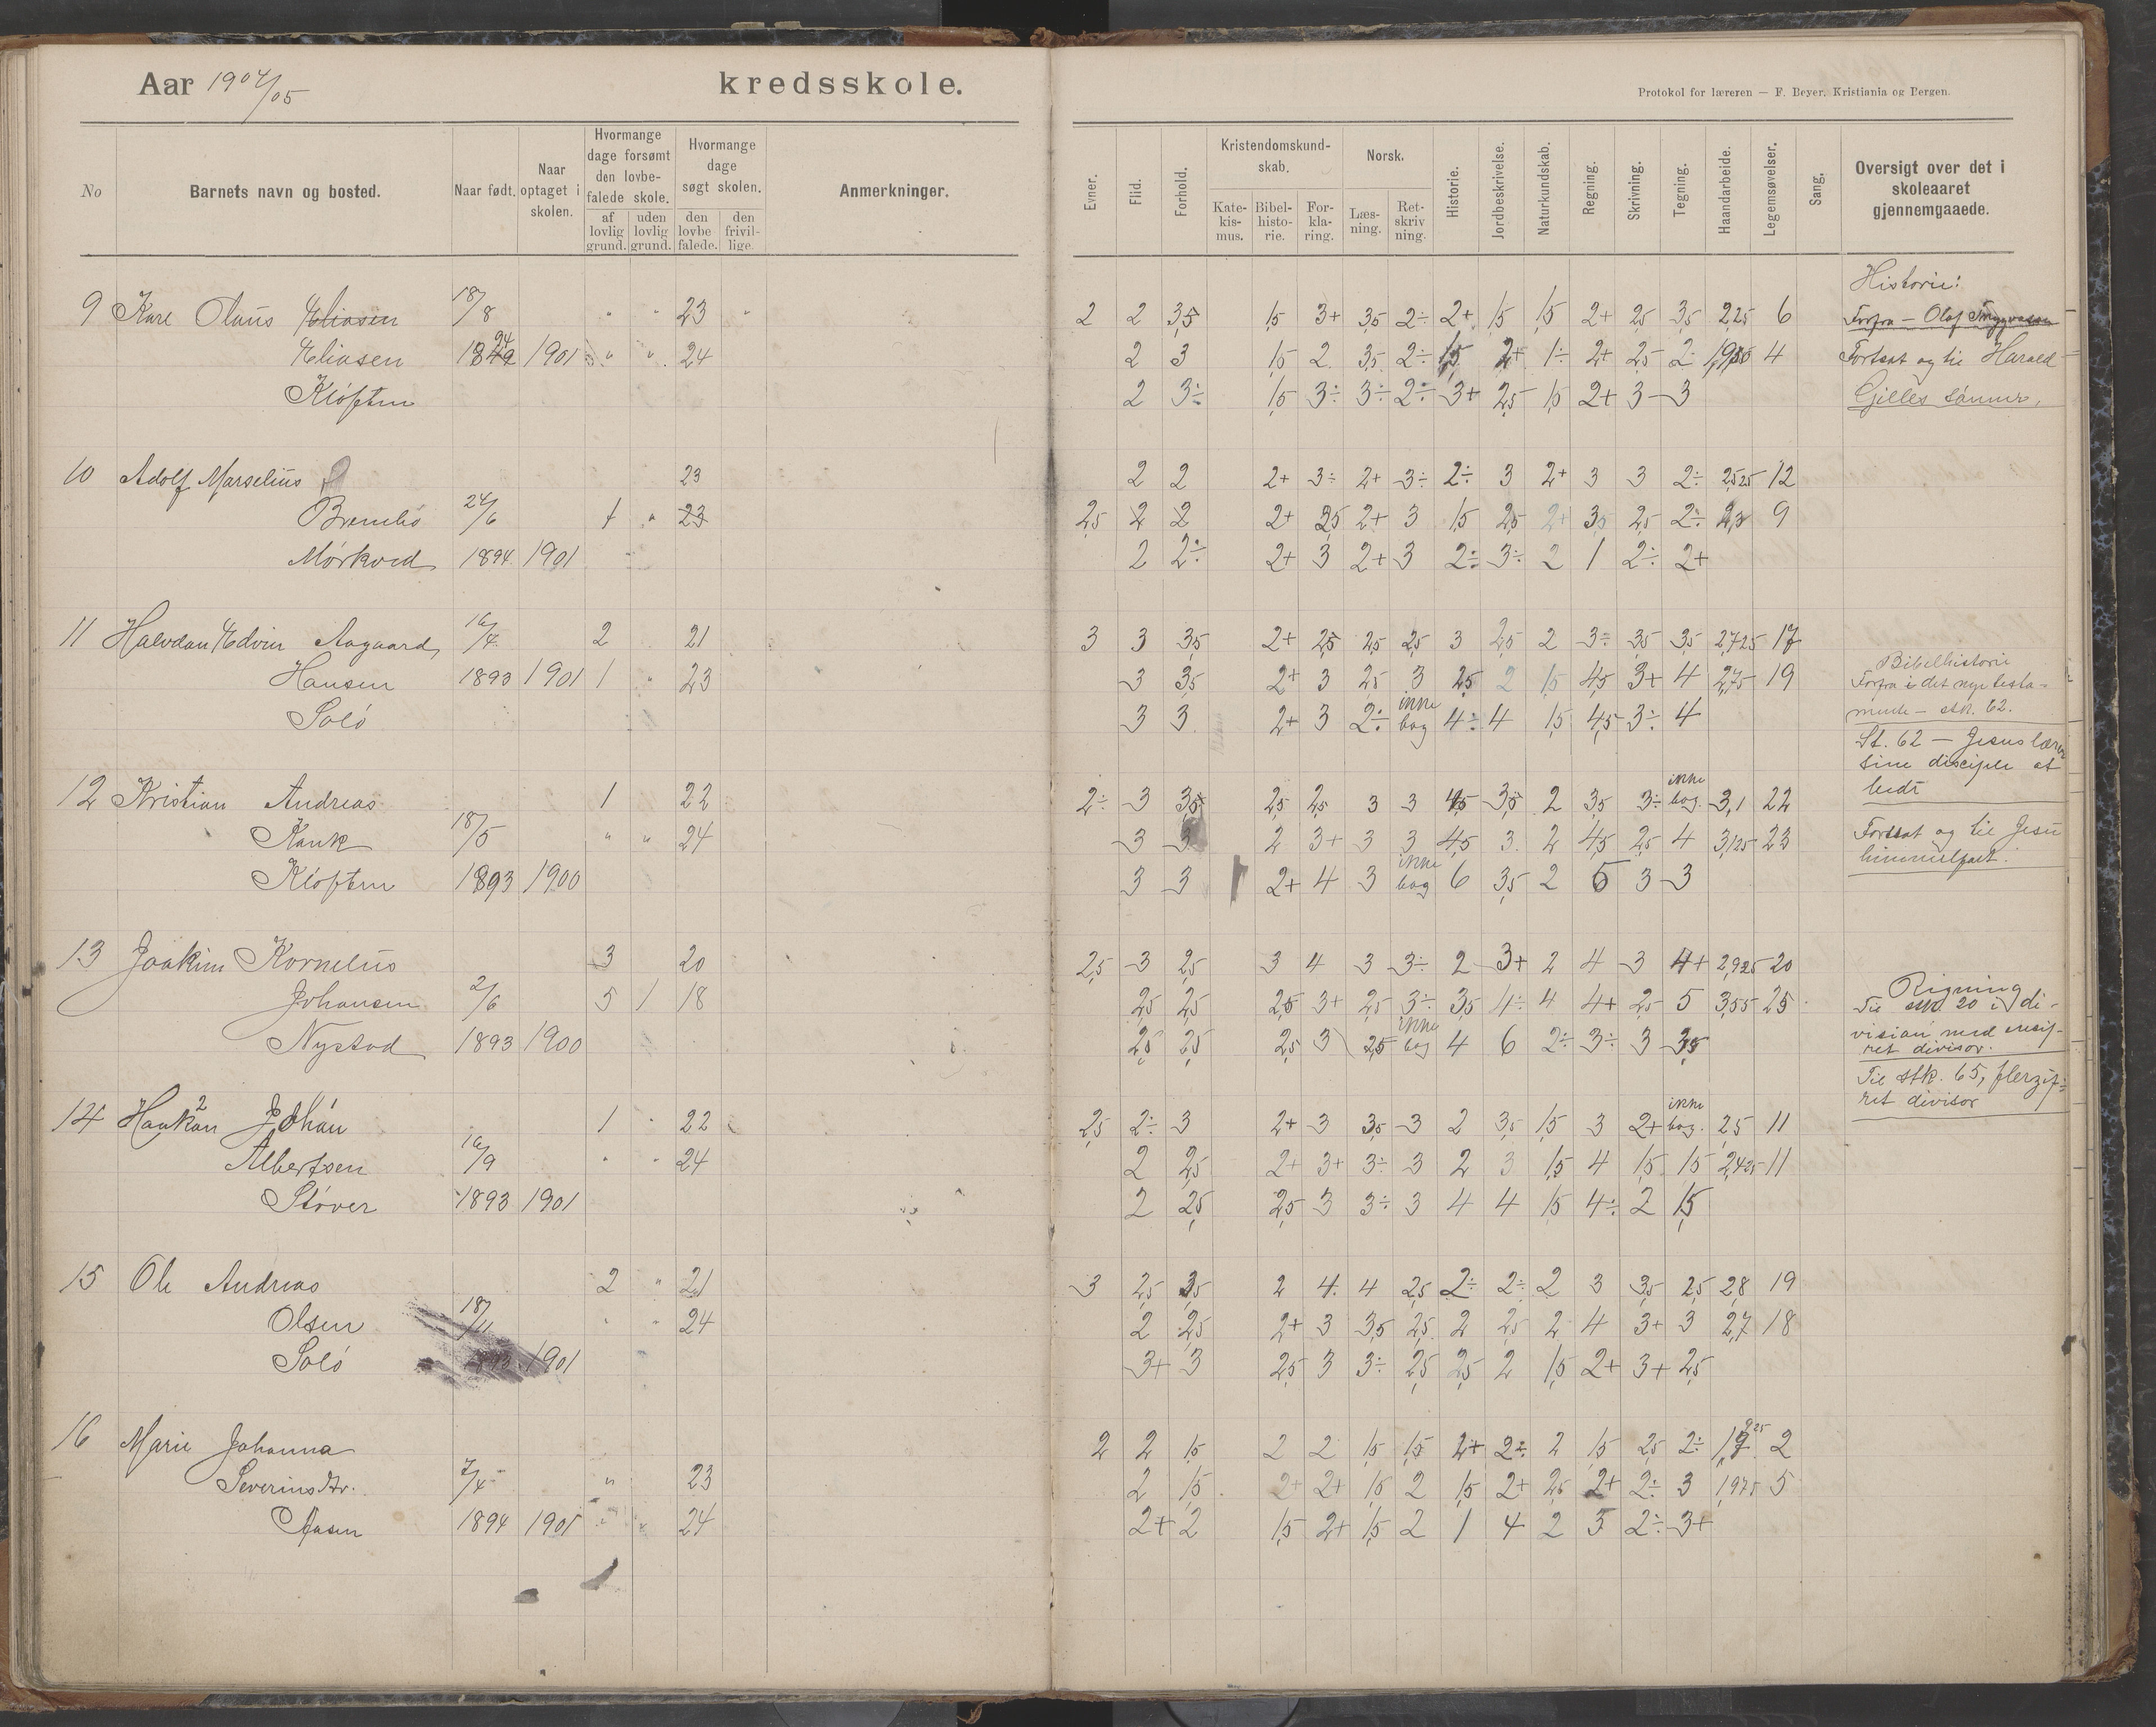 Aar 1904/05 kredsskole.
Protokol for læreren — F. Beyer, Kristiania og Bergen.
No Barnets navn og bosted. Naar født. Naar optaget i skolen. Hvormange dage forsømt den lovbefalede skole. af lovlig grund. uden lovlig grund. Hvormange dage søgt skolen. den lovbefalede. den frivillige. Anmerkninger.
Evner. Flid. Forhold. Kristendomskundskab. Katekismus. Bibelhistorie. Forklaring. Norsk. Læsning. Retskrivning. Historie. Jordbeskrivelse. Naturkundskab. Regning. Skrivning. Tegning. Haandarbeide. Legemsøvelser. Sang. Oversigt over det i skoleaaret gjennemgaaede.
Historie:
9 Kare Olaus Eliasen 18/8 " " 23 " 2 2 3,5 1,5 3+ 3,5 2÷ 2+ 1,5 1,5 2+ 2,5 3,5 2,25 6 Forfra - Olaf Trygvason
Eliasen 1894 1901 " " 24 2 3 1,5 2 3,5 2÷ 1,5 2+ 1÷ 2+ 2,5 2÷ 4 Fortsat og til Harald
Kløften 2 3÷ 1,5 3÷ 3÷ 2÷ 3+ 2,5 1,5 2+ 3 3 Gilles sønner.
10 Adolf Marselius 23 2 2 2+ 3÷ 2+ 3÷ 2÷ 3 2+ 3 3 2÷ 2,525 12
Brembo 24/6 1 " 23 2,5 2 2 2+ 2,5 2+ 3 1,5 2,5 2+ 3,5 2,5 2÷ 2,3 9
Mørkved 1894 1901 2 2÷ 2+ 3 2+ 3 2÷ 3÷ 2 1 2÷ 2+
11 Halvdan Edvin Aagaard 16/4 2 21 3 3 3,5 2+ 2,5 2,5 2,5 3 2,5 2 3÷ 3,5 3,5 2,725 17
Hansen 1893 1901 1 " 23 3 3,5 2+ 3 2,5 3 2,5 2 1,5 4,5 3+ 4 2,75 19
Bibelhistorie
Forfra i det nye testa-
mente - stk. 62.
Solø 3 3 2+ 3 2÷ ikke bog 4÷ 4 1,5 4,5 3÷ 4
St. 62 — Jesus lærer
sine disciple at
bede
12 Kristian Andreas 1 22 2÷ 3 3,5 2,5 2,5 3 3 4,5 3,5 2 3,5 3÷ ikke bog. 3,1 22
Kank 18/5 " " 24 3 3 2 3+ 3 3 4,5 3 2 4,5 2,5 4 3,125 23 Fortsat og til Jesu
himmelfart.
Kløften 1893 1900 3 3 2+ 4 3 ikke bog 6 3,5 2 5 3 3
13 Joakim Kornelius 3 20 2,5 3 2,5 3 4 3 3÷ 2 3+ 2 4 3 4+ 2,925 20
Regning
Johansen 2/6 5 1 18 2,5 2,5 2,5 3+ 2,5 3÷ 3,5 4÷ 4 4+ 2,5 5 3,55 25 Til stk. 20 i di-
vision med ensif-
ret divisor.
Nystad 1893 1900 2,5 2,5 2,5 3 2,5 ikke bog 4 6 2÷ 3÷ 3 3,5
Til stk. 65, flerzif-
ret divisor
14 Haakan Johan 1 " 22 2,5 2÷ 3 2+ 3 3,5 3 2 3,5 1,5 3 2+ ikke bog. 2,5 11
Albertsen 16/9 " " 24 2 2,5 2+ 3+ 3÷ 3 2 3 1,5 4 1,5 1,5 2,425 11
Støver 1893 1901 2 2,5 2,5 3 3÷ 3 4 4 1,5 4÷ 2 1,5
15 Ole Andreas 2 " 21 3 2,5 3,5 2 4 4 2,5 2÷ 2÷ 2 3 3,5 2,5 2,8 19
Olsen 18/11 " " 24 2 2,5 2+ 3 3,5 2,5 2 2,5 2 4 3+ 3 2,7 18
Solø 1893 1901 3+ 3 2,5 3 3÷ 2,5 2,5 2 1,5 2+ 3+ 2,5
16 Marie Johanna 2 2 1,5 2 2 1,5 1,5 2+ 2÷ 2 1,5 2,5 2÷ 2
Severinsdtr. 7/4 " 23 2 1,5 2+ 2+ 1,5 2 1,5 2+ 2,5 2+ 2÷ 3 1,975 5
Aasen 1894 1901 " " 24 2+ 2 1,5 2+ 1,5 2 1 4 2 3 2÷ 3+